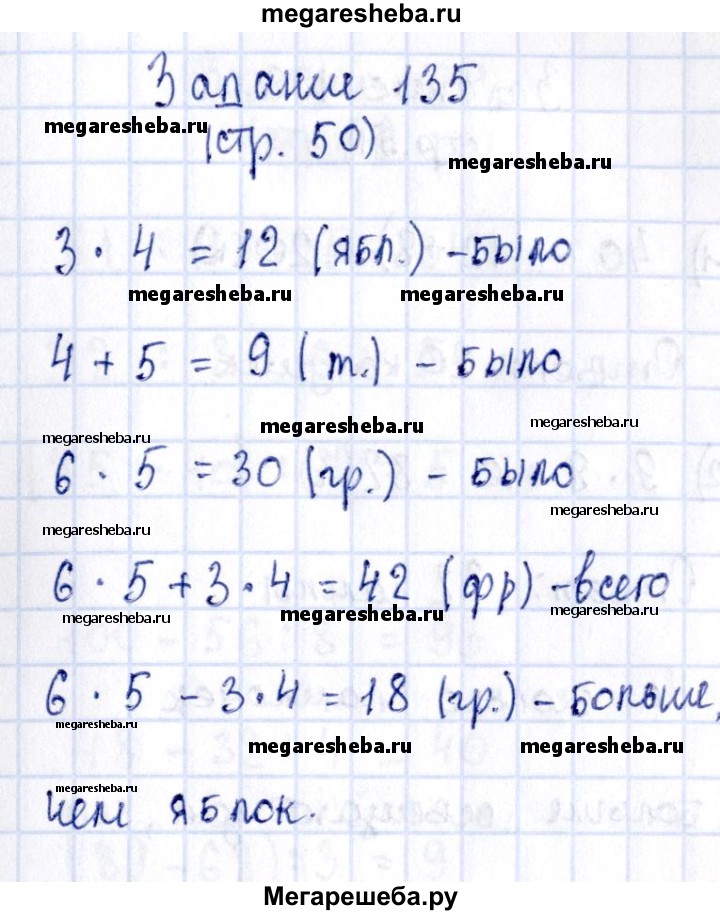 megaresheba.ru
Задание 135
megaresheba.ru
(стр. 50)
megaresheba.ru
3 · 4 = 12 (ябл.) - было
megaresheba.ru megaresheba.ru
4 + 5 = 9 (т.) - было
megaresheba.ru megaresheba.ru
megaresheba.ru
6 · 5 = 30 (гр.) - было
megaresheba.ru
megaresheba.ru
6 · 5 + 3 · 4 = 42 (фр) - всего
megaresheba.ru megaresheba.ru megaresheba.ru
6 · 5 - 3 · 4 = 18 (гр.) - больше,
megaresheba.ru
megaresheba.ru megaresheba.ru
megaresheba.ru
чем яблок.
Мегарешеба.ру